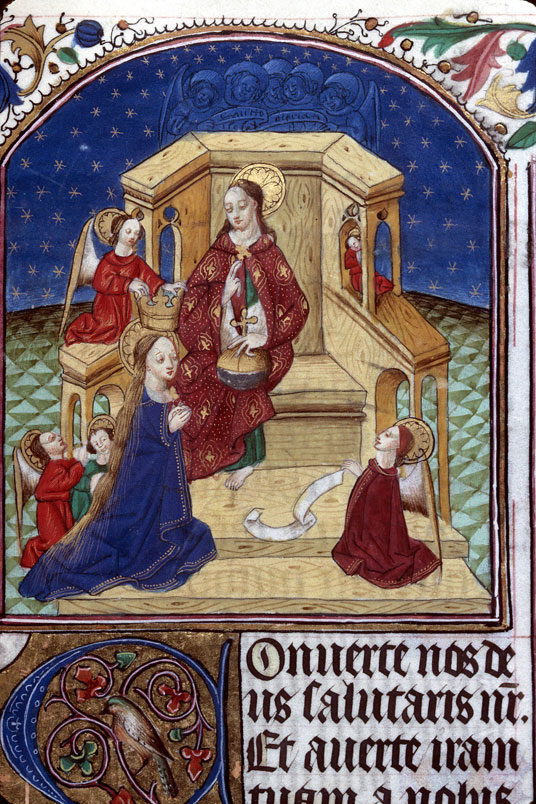 Onuerte nos de
us salutaris nr̄.
Et auerte iram
tuam a nobis